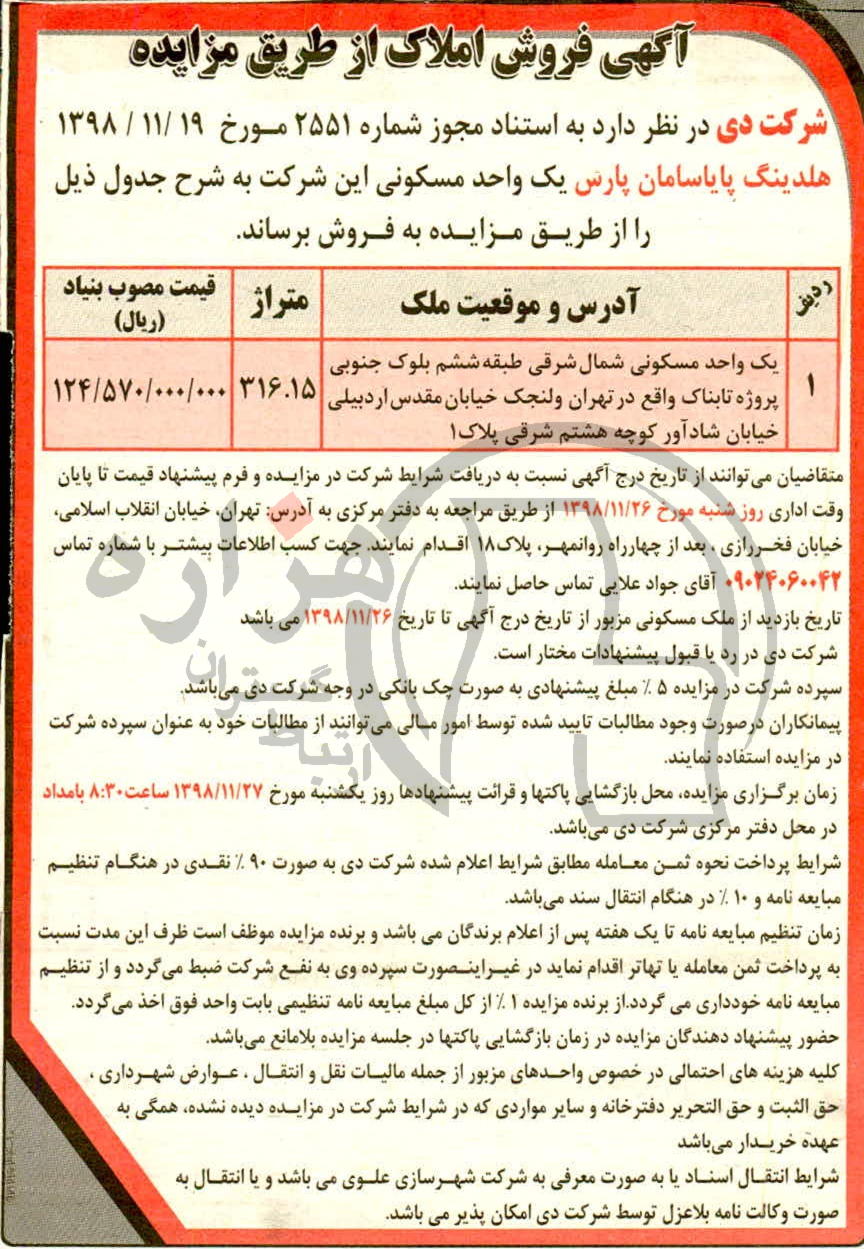 آگهی فروش املاک از طریق مزایده
شرکت دی در نظر دارد به استناد مجوز شماره ۲۵۵۱ مـورخ ۱۳۹۸/۱۱/۱۹
هلدینگ پایاسامان پارس یک واحد مسکونی این شرکت به شرح جدول ذیل
را از طریـق مـزایـده به فـروش برساند.
ردیف
آدرس و موقعیت ملک
متراژ
قیمت مصوب بنیاد
(ریال)
۱
یک واحد مسکونی شمال شرقی طبقه ششم بلوک جنوبی
پروژه تابناک واقع در تهران ولنجک خیابان مقدس اردبیلی
خیابان شادآور کوچه هشتم شرقی پلاک۱
۳۱۶.۱۵
۱۲۴/۵۷۰/۰۰۰/۰۰۰
متقاضیان می‌توانند از تاریخ درج آگهی نسبت به دریافت شرایط شرکت در مزایـده و فرم پیشنهاد قیمت تا پایان
وقت اداری روز شنبه مورخ ۱۳۹۸/۱۱/۲۶ از طریق مراجعه به دفتر مرکزی به آدرس: تهران، خیابان انقلاب اسلامی،
خیابان فخـررازی ، بعد از چهارراه روانمهـر، پلاک۱۸ اقـدام نمایند. جهت کسب اطلاعات بیشتـر با شماره تماس
۰۹۰۲۴۰۶۰۰۴۲ آقای جواد علایی تماس حاصل نمایند.
تاریخ بازدید از ملک مسکونی مزبور از تاریخ درج آگهی تا تاریخ ۱۳۹۸/۱۱/۲۶ می باشد
شرکت دی در رد یا قبول پیشنهادات مختار است.
سپرده شرکت در مزایده ۵ ٪ مبلغ پیشنهادی به صورت چک بانکی در وجه شرکت دی می‌باشد.
پیمانکاران درصورت وجود مطالبات تایید شده توسط امور مـالی می‌توانند از مطالبات خود به عنوان سپرده شرکت
در مزایده استفاده نمایند.
زمان برگـزاری مزایده، محل بازگشایی پاکتها و قرائت پیشنهادها روز یکشنبه مورخ ۱۳۹۸/۱۱/۲۷ ساعت ۸:۳۰ بامداد
در محل دفتر مرکزی شرکت دی می‌باشد.
شرایط پرداخت نحوه ثمـن معـامله مطابق شرایط اعلام شده شرکت دی به صورت ۹۰ ٪ نقـدی در هنگـام تنظیـم
مبایعه نامه و ۱۰ ٪ در هنگام انتقال سند می‌باشد.
زمان تنظیم مبایعه نامه تا یک هفته پس از اعلام برندگان می باشد و برنده مزایده موظف است ظرف این مدت نسبت
به پرداخت ثمن معامله یا تهاتر اقدام نماید در غیـراینـصورت سپرده وی به نفـع شرکت ضبط می‌گردد و از تنظیـم
مبایعه نامه خودداری می گردد.از برنده مزایده ۱ ٪ از کل مبلغ مبایعه نامه تنظیمی بابت واحد فوق اخذ می‌گردد.
حضور پیشنهاد دهندگان مزایده در زمان بازگشایی پاکتها در جلسه مزایده بلامانع می‌باشد.
کلیه هزینه های احتمالی در خصوص واحـدهای مزبور از جمله مالیـات نقل و انتقـال ، عـوارض شهـرداری ،
حق الثبت و حق التحریر دفترخانه و سایر مواردی که در شرایط شرکت در مزایـده دیده نشده، همگی به
عهده خریـدار می‌باشد
شرایط انتقـال اسنـاد یا به صورت معرفی به شرکت شهـرسازی علـوی می باشد و یا انتقـال به
صورت وکالت نامه بلاعزل توسط شرکت دی امکان پذیر می باشد.
هزاره
ارتباط گستران